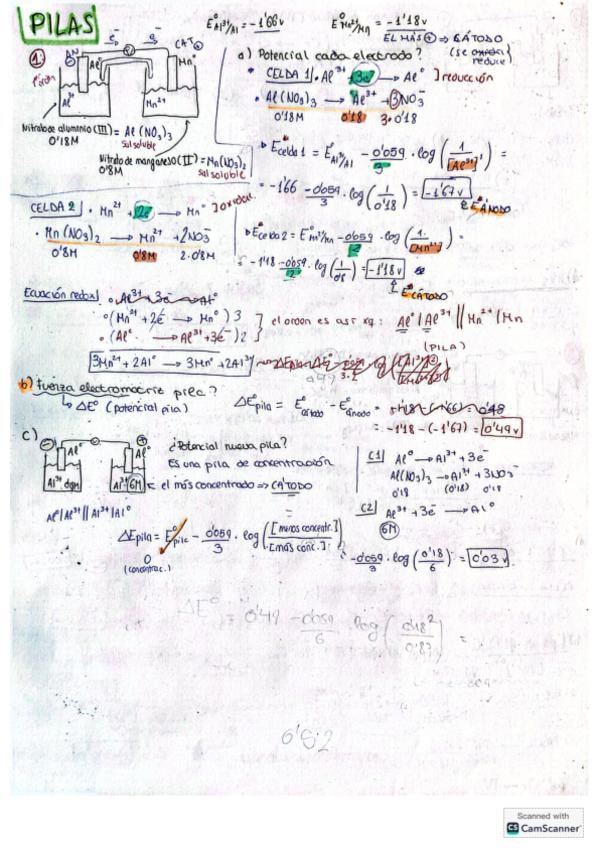 PILAS
E°Al³⁺/Al = -1'66v   E°Mn²⁺/Mn = -1'18v
EL MÁS ⊕ ⇒ CÁTODO
(se reduce)
1.
AN
CAT ⊕
Al°
Mn°
Al³⁺
Mn²⁺
Nitrato de aluminio (III) = Al(NO₃)₃
0'18M   sal soluble
Nitrato de manganeso (II) = Mn(NO₃)₂
0'8M   sal soluble
a) Potencial cada electrodo?
CELDA 1 · Al³⁺ + 3e⁻ → Al° ] reducción
· Al(NO₃)₃ → Al³⁺ + 3NO₃⁻
0'18M   0'18   3·0'18
Ecelda1 = E°Al³⁺/Al - 0'059/3 · log (1/[Al³⁺]) =
= -1'66 - 0'059/3 · log (1/0'18) = -1'67v
E°ÁNODO
CELDA 2 · Mn²⁺ + 2e⁻ → Mn°
· Mn(NO₃)₂ → Mn²⁺ + 2NO₃⁻
0'8M   0'8M   2·0'8M
Ecelda2 = E°Mn²⁺/Mn - 0'059/2 · log (1/[Mn²⁺]) =
= -1'18 - 0'059/2 · log (1/0'8) = -1'18v
E°CÁTODO
Ecuación redox
Al³⁺ 3e⁻ Al°
(Mn²⁺ + 2e⁻ → Mn°) 3
(Al° → Al³⁺ + 3e⁻) 2
el orden es así xq: Al°/Al³⁺ || Mn²⁺/Mn
(PILA)
3Mn²⁺ + 2Al° → 3Mn° + 2Al³⁺
b) Fuerza electromotriz pila?
↳ ΔE° (potencial pila)
ΔEpila = E°cátodo - E°ánodo = -1'18 - (-1'66) = 0'48
= -1'18 - (-1'67) = 0'49v
c)
Al°
Al°
Al³⁺
Al³⁺ 6M
el más concentrado ⇒ CÁTODO
¿Potencial nueva pila?
Es una pila de concentración
C1   Al° → Al³⁺ + 3e⁻
Al(NO₃)₃ → Al³⁺ + 3NO₃⁻
0'18   (0'18)   0'18
C2   Al³⁺ + 3e⁻ → Al°
6M
Al°/Al³⁺ || Al³⁺/Al°
ΔEpila = E°pila - 0'059/3 · log ([menos concentr.]/[más conc.]) =
0
(concentrac.)
-0'059/3 · log (0'18/6) = 0'03v
ΔE° = 0'49 - 0'059/6 · log (0'18²/0'8³) =
Scanned with
CS CamScanner